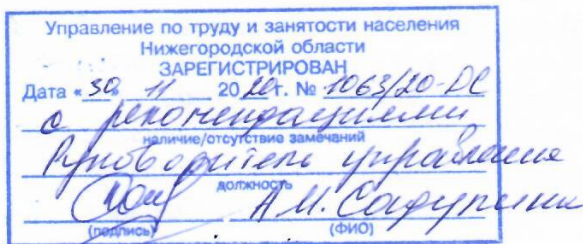 Управление по труду и занятости населения
Нижегородской области
ЗАРЕГИСТРИРОВАН
Дата «30» 11 2020г. № 1063/20-ДС
с рекомендациями
наличие/отсутствие замечаний
Руководитель управления
должность
А.М.
(подпись) (ФИО)